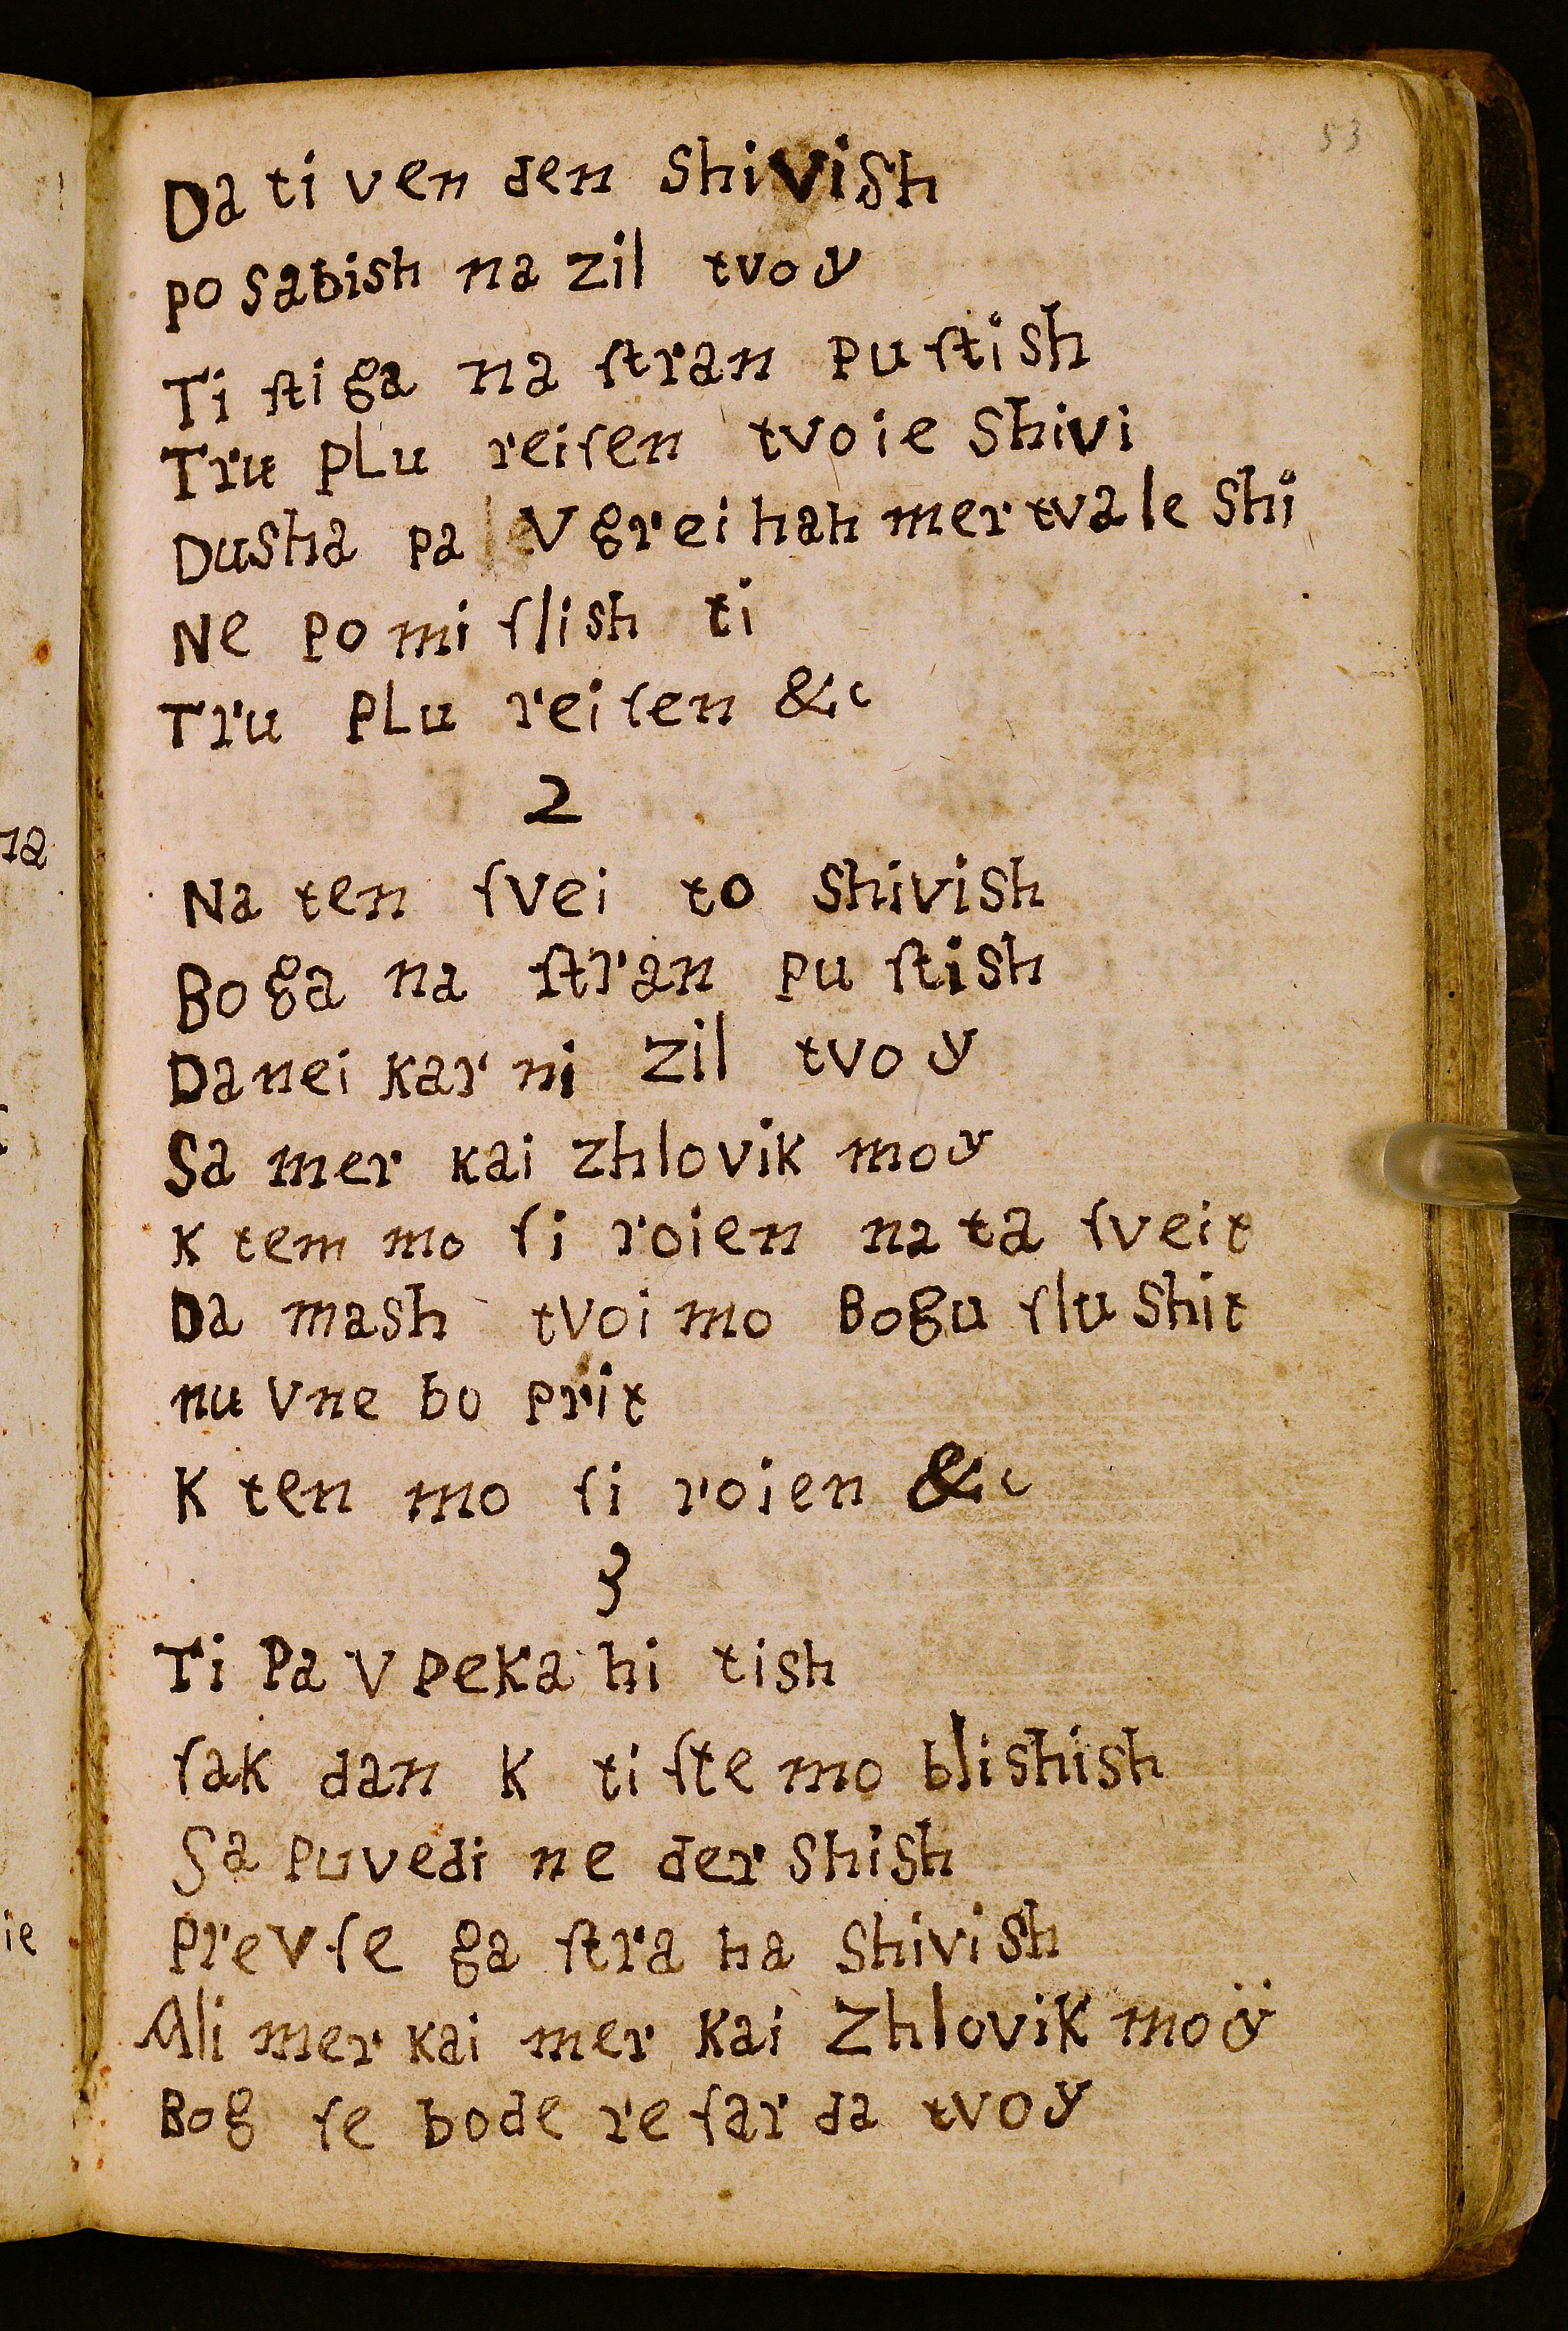 53
Da ti ven den shivish
po sabish na zil tvoy
Ti ſti ga na ſtran pu ſti sh
Tru pLu reiſen tvoie shivi
Dusha pa V grei hah mer tva le shi
Ne po mi ſlish ti
Tru pLu reiſen &c
2
Na ten ſvei to shivish
Bo ga na ſtran pu ſtish
Da nei kar ni zil tvo y
Sa mer kai zhlovik moy
K tem mo ſi roien na ta ſveit
Da mash tvoi mo Bogu ſlu shit
nu V ne bo prit
K ten mo ſi roien &c
3
Ti Pa V peka hi tish
ſak dan K ti ſte mo blishish
Sa puvedi ne der shish
PreVſe ga ſtra ha shivish
Ali mer kai mer Kai Zhlovik moÿ
Bog ſe bode re ſar da tvoy
na
ie